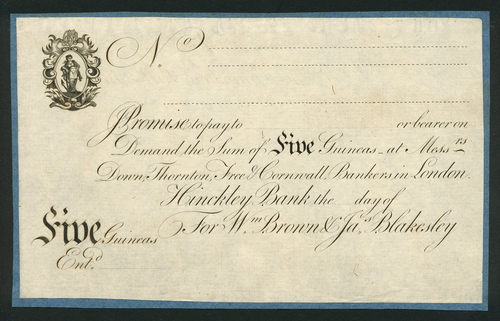 No
I Promise to pay to or bearer on
Demand the Sum of Five Guineas at Messrs
Down, Thornton, Free & Cornwall, Bankers in London.
Hinckley Bank the day of
For Wm Brown & Jas Blakesley
Five Guineas
Entd